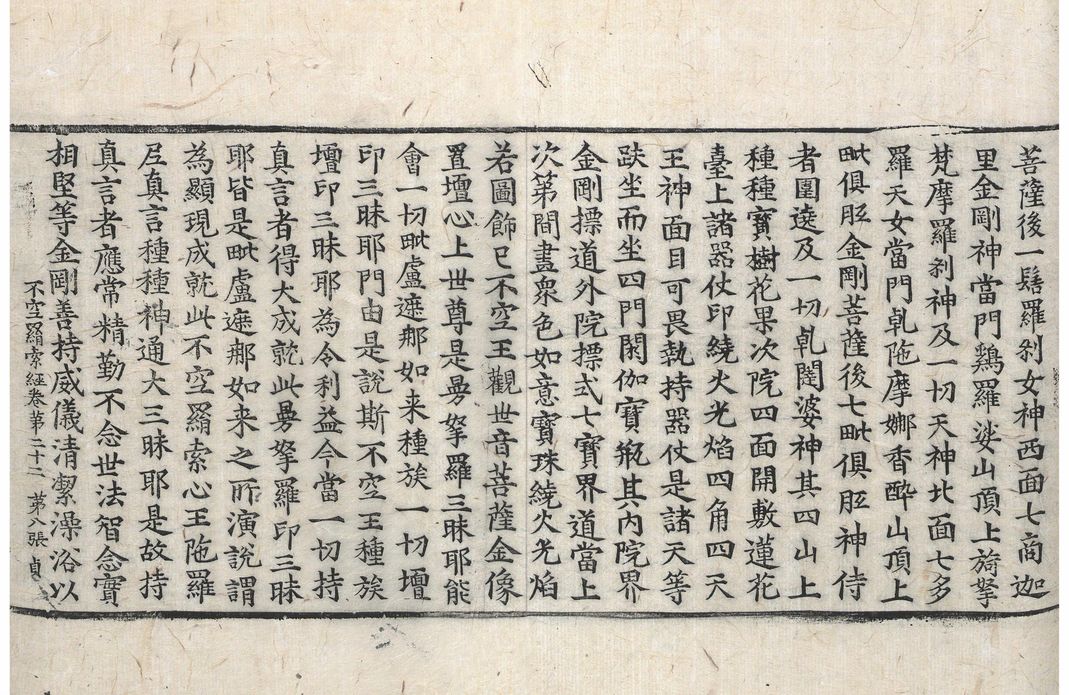 菩薩後一髻羅剎女神西面七商迦
里金剛神當門鷄羅娑山頂上旖拏
梵摩羅剎神及一切天神北面七多
羅天女當門乹陁摩娜香醉山頂上
毗俱胝金剛菩薩後七毗俱胝神侍
者圍遶及一切乹闥婆神其四山上
種種寶樹花果次院四面開敷蓮花
臺上諸器仗印繞火光焰四角四天
王神面目可畏執持器仗是諸天等
趺坐而坐四門閼伽寶瓶其內院界
金剛摽道外院摽式七寶界道當上
次第間畫衆色如意寶珠繞火光焰
若圖飾已不空王觀世音菩薩金像
置壇心上世尊是曼拏羅三昧耶能
會一切毗盧遮那如来種族一切壇
印三昧耶門由是說斯不空王種族
壇印三昧耶為令利益今當一切持
真言者得大成就此曼拏羅印三昧
耶皆是毗盧遮那如来之所演說謂
為顯現成就此不空羂索心王陁羅
尼真言種種神通大三昧耶是故持
真言者應常精勤不念世法智念實
相堅等金剛善持威儀清潔澡浴以
不空羂索経卷第二十二　第八張　貞